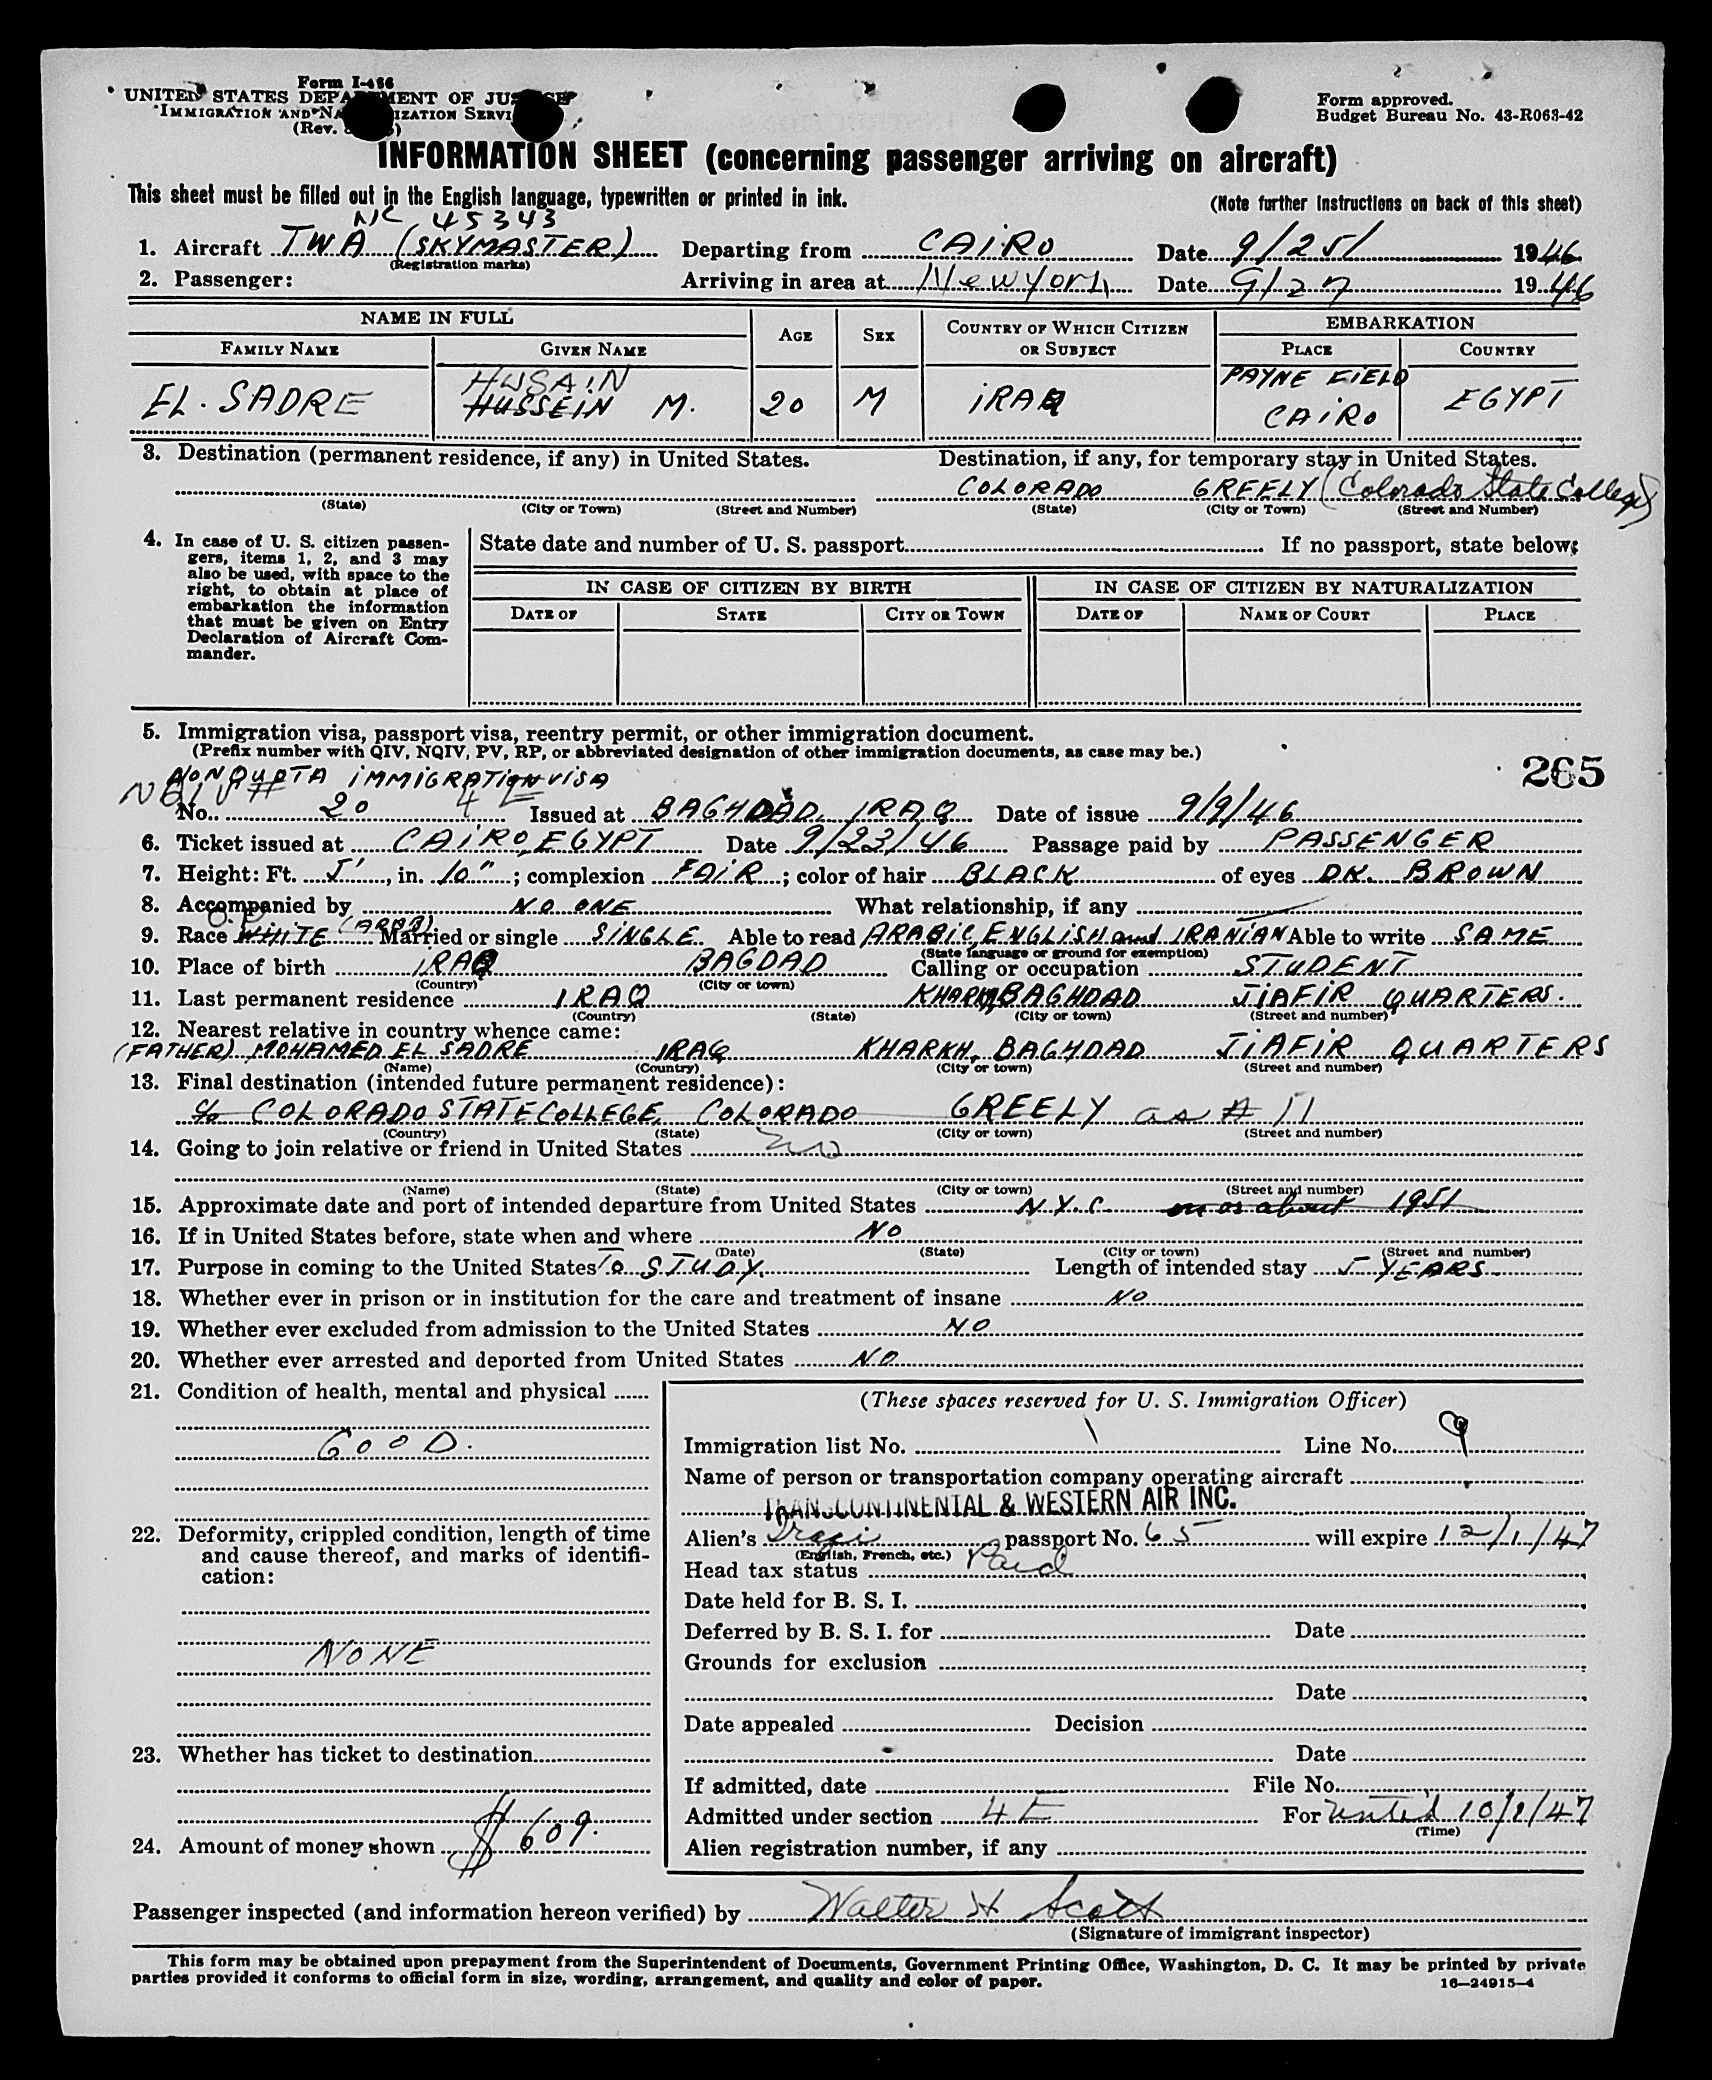 Form I-466
UNITED STATES DEPARTMENT OF JUSTICE
IMMIGRATION AND NATURALIZATION SERVICE
(Rev.
Form approved.
Budget Bureau No. 43-R063-42
INFORMATION SHEET (concerning passenger arriving on aircraft)
This sheet must be filled out in the English language, typewritten or printed in ink.
(Note further instructions on back of this sheet)
NC 45343
1. Aircraft TWA (SKYMASTER) Departing from CAIRO Date 9/25/ 1946
(Registration marks)
2. Passenger: Arriving in area at New York Date 9/27 1946
NAME IN FULL AGE SEX COUNTRY OF WHICH CITIZEN OR SUBJECT EMBARKATION
FAMILY NAME GIVEN NAME PLACE COUNTRY
HUSAIN PAYNE FIELD
EL. SADRE HUSSEIN M. 20 M IRAQ CAIRO EGYPT
3. Destination (permanent residence, if any) in United States. Destination, if any, for temporary stay in United States.
COLORADO GREELY (Colorado State College)
(State) (City or Town) (Street and Number) (State) (City or Town) (Street and Number)
4. In case of U. S. citizen passen-
gers, items 1, 2, and 3 may
also be used, with space to the
right, to obtain at place of
embarkation the information
that must be given on Entry
Declaration of Aircraft Com-
mander.
State date and number of U. S. passport If no passport, state below:
IN CASE OF CITIZEN BY BIRTH IN CASE OF CITIZEN BY NATURALIZATION
DATE OF STATE CITY OR TOWN DATE OF NAME OF COURT PLACE
5. Immigration visa, passport visa, reentry permit, or other immigration document.
(Prefix number with QIV, NQIV, PV, RP, or abbreviated designation of other immigration documents, as case may be.)
265
NON QUOTA IMMIGRATION VISA
NQIV #
No. 20 4 E Issued at BAGHDAD, IRAQ Date of issue 9/9/46
6. Ticket issued at CAIRO, EGYPT Date 9/23/46 Passage paid by PASSENGER
7. Height: Ft. 5', in. 10"; complexion FAIR; color of hair BLACK of eyes DK. BROWN
8. Accompanied by NO ONE What relationship, if any
9. Race WHITE (ARAB) Married or single SINGLE Able to read ARABIC, ENGLISH and IRANIAN Able to write SAME
(State language or ground for exemption)
10. Place of birth IRAQ BAGDAD Calling or occupation STUDENT
(Country) (City or town)
11. Last permanent residence IRAQ KHARKH, BAGHDAD JIAFIR QUARTERS.
(Country) (State) (City or town) (Street and number)
12. Nearest relative in country whence came:
(FATHER) MOHAMED EL SADRE IRAQ KHARKH, BAGHDAD JIAFIR QUARTERS
(Name) (Country) (City or town) (Street and number)
13. Final destination (intended future permanent residence):
c/o COLORADO STATE COLLEGE, COLORADO GREELY as # 11
(Country) (State) (City or town) (Street and number)
14. Going to join relative or friend in United States no
(Name) (State) (City or town) (Street and number)
15. Approximate date and port of intended departure from United States N.Y.C. on or about 1951
16. If in United States before, state when and where NO
(Date) (State) (City or town) (Street and number)
17. Purpose in coming to the United States TO STUDY. Length of intended stay 5 YEARS
18. Whether ever in prison or in institution for the care and treatment of insane NO
19. Whether ever excluded from admission to the United States NO
20. Whether ever arrested and deported from United States NO
21. Condition of health, mental and physical
GOOD.
22. Deformity, crippled condition, length of time
and cause thereof, and marks of identifi-
cation:
NONE
23. Whether has ticket to destination
24. Amount of money shown $609.
(These spaces reserved for U. S. Immigration Officer)
Immigration list No. 1 Line No. 9
Name of person or transportation company operating aircraft
TRANSCONTINENTAL & WESTERN AIR INC.
Alien's Iraqi passport No. 65 will expire 12/1/47
(English, French, etc.)
Head tax status Paid
Date held for B. S. I.
Deferred by B. S. I. for Date
Grounds for exclusion
Date
Date appealed Decision
Date
If admitted, date File No.
Admitted under section 4E For until 10/1/47
(Time)
Alien registration number, if any
Passenger inspected (and information hereon verified) by Walter H Scott
(Signature of immigrant inspector)
This form may be obtained upon prepayment from the Superintendent of Documents, Government Printing Office, Washington, D. C. It may be printed by private
parties provided it conforms to official form in size, wording, arrangement, and quality and color of paper.
16—24915-4